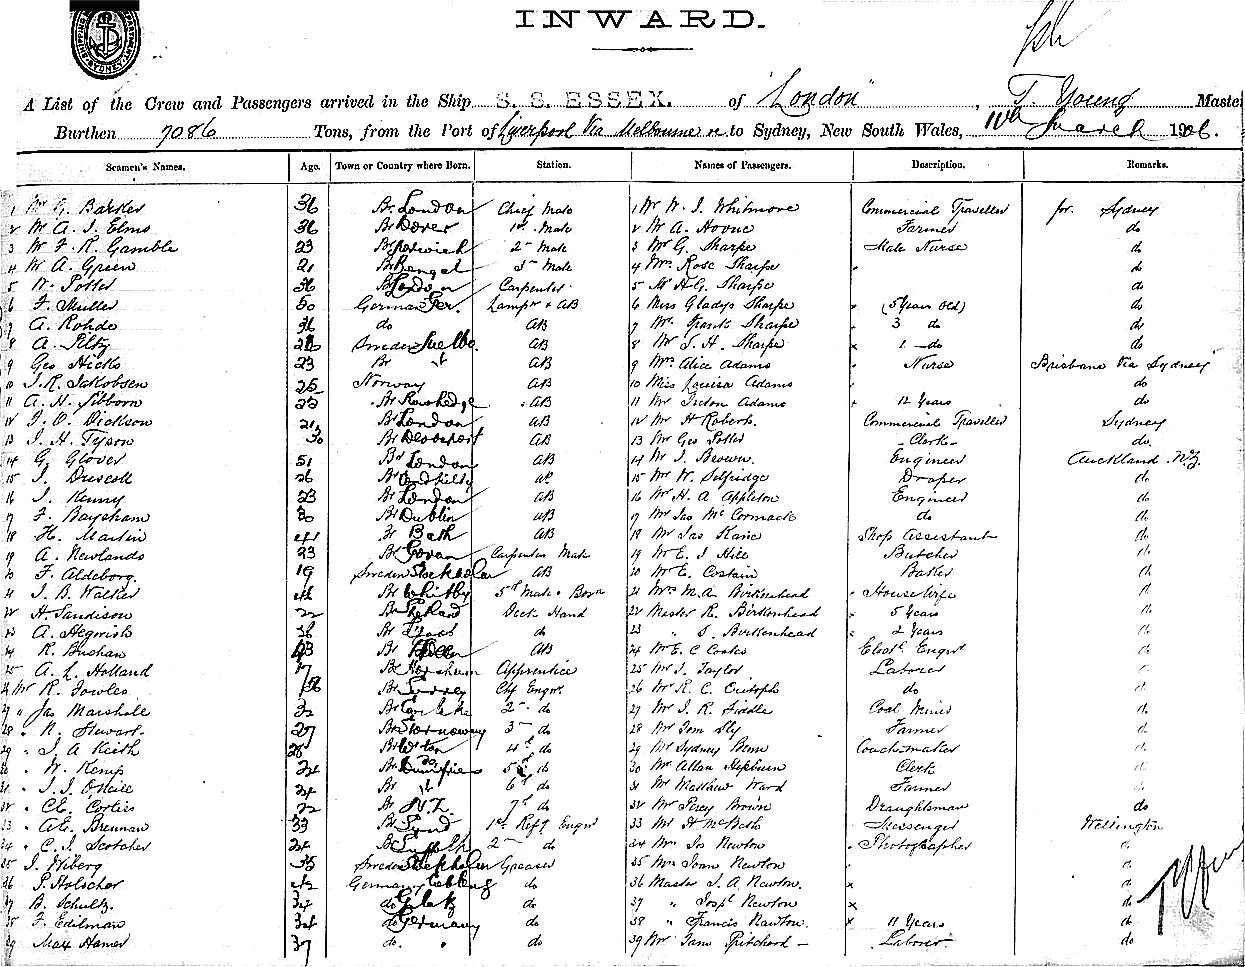 INWARD.
A List of the Crew and Passengers arrived in the Ship S. S. ESSEX. of "London", T. Young Master
Burthen 7086 Tons, from the Port of Liverpool Via Melbourne to Sydney, New South Wales, 11th March 1906.
Seamen's Names. Age. Town or Country where Born. Station. Names of Passengers. Description. Remarks.
1 Mr G. Barker 36 Br London Chief Mate 1 Mr W. J. Whitmore Commercial Traveller for Sydney
2 Mr A. J. Elms 36 Br Dover 1st Mate 2 Mr A. Farmer do
3 Mr F. R. Gamble 23 Br 2nd Mate 3 Mr G. Sharpe Male Nurse do
4 Mr A. Green 21 Br Bengal 3rd Mate 4 Mrs Rose Sharpe do
5 W. Potter 36 Br London Carpenter 5 Mr H. G. Sharpe do
6 F. Muller 50 German Lampr & AB 6 Miss Gladys Sharpe (5 Years Old) do
7 A. Rohde 36 do AB 7 Mr Frank Sharpe 3 do do
8 A. Sweden AB 8 Mr J. H. Sharpe 1 do do
9 Geo Hicks 23 Br AB 9 Mrs Alice Adams Nurse Brisbane Via Sydney
10 J. R. Jakobsen 25 Norway AB 10 Miss Louisa Adams do
11 A. H. Sibborn 23 Br Rowhedge AB 11 Mr Adams 12 Years do
12 J. O. Dickson 21 Br London AB 12 Mr H Roberts. Commercial Traveller Sydney
13 J. H. Tyson 30 Br Devonport AB 13 Mr Geo Potter Clerk do.
14 G. Glover 51 Br London AB 14 Mr J. Brown. Engineer Auckland N.Z.
15 J. Driscoll 26 Br AB 15 Mr W. Selfridge Draper do
16 J. Kenny 23 Br London AB 16 Mr H. A. Appleton Engineer do
17 F. Baysham 30 Br Dublin AB 17 Mr Jas McCormack do do
18 H. Martin 41 Br Bath AB 18 Mr Jas Kane Shop Assistant do
19 A. Newlands 23 Br Govan Carpenter Mate 19 Mr E. J. Hill Butcher do
20 F. Aldeborg. 19 Sweden Stockholm AB 20 Mr E. Costain Baker do
21 J. B. Walker 44 Br Whitby 5th Mate & Bosn 21 Mrs M. A. Birkenhead Housewife do
22 H. Sandison 22 Br Shetland Deck Hand 22 Master R. Birkenhead 5 Years do
23 A. 36 Br do 23 " S. Birkenhead 2 Years do
24 R. Buchan 43 Br AB 24 Mr E. C. Coates Elect. Engr do
25 A. L. Holland 17 Br Horsham Apprentice 25 Mr J. Taylor Laborer do
26 Mr R. Fowles Br Surrey Chf Engr. 26 Mr R. C. do do
27 " Jas Marshall 32 Br 2nd do 27 Mr J. R. Siddle Coal Miner do
28 " N. Stewart. 27 Br Stornoway 3rd do 28 Mr Tom Sly Farmer do
29 " J. A. Keith Br 4th do 29 Mr Sydney Benn Coachmaker do
30 " W. Kemp 24 Br Dumfries 5th do 30 Mr Allan Hepburn Clerk do
31 " J. J. ONeill 24 Br 6th do 31 Mr Matthew Ward Farmer do
32 " C.E. Corties 22 Br N.Z. 7th do 32 Mr Percy Brown Draughtsman do
33 " A.E. Brennan 33 Br 1st Refg Engr 33 Mr H McBeth Messenger Wellington
34 " C. J. Scotcher 24 Br Suffolk 2nd do 34 Mr Js Newton Photographer do
35 J. Wiberg 35 Sweden Greaser 35 Mrs Joan Newton do
36 P. Holscher 42 Germany do 36 Master J. A. Newton. do
37 B. Schultz. 34 do Glatz do 37 " Josph Newton do
38 F. Edilman 34 do Germany do 38 " Francis Newton. 11 Years do
39 Max Hamer 37 do. " do 39 Mr Jane Pritchard Laborer do